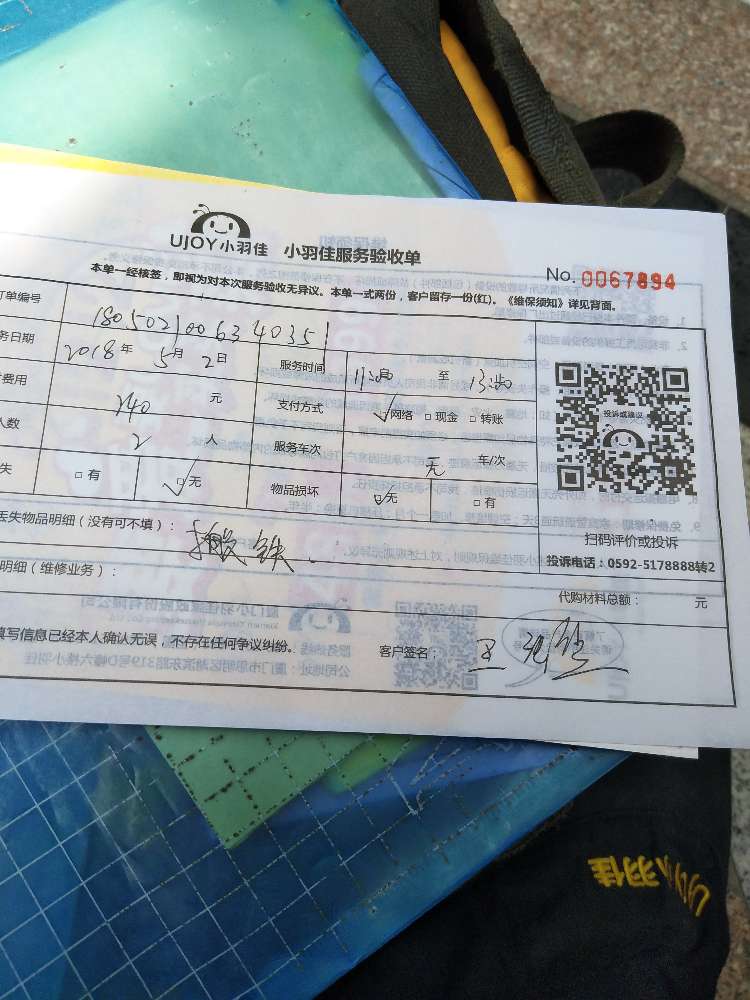 UJOY小羽佳 小羽佳服务验收单
No.0067894
本单一经核签，即视为对本次服务验收无异议。本单一式两份，客户留存一份(红)。《维保须知》详见背面。
订单编号 1805021006340351
务日期 2018年 5月 2日 服务时间 11:00 至 13:00
费用 240 元 支付方式 网络 现金 转账
人数 2 人 服务车次 无 车/次
失 有 无 物品损坏 无 有
投诉或建议
扫码评价或投诉
投诉电话：0592-5178888转2
丢失物品明细（没有可不填）：
明细（维修业务）：
代购材料总额： 元
填写信息已经本人确认无误，不存在任何争议纠纷。 客户签名：
UJOY小羽佳